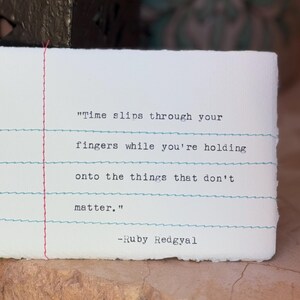 "Time slips through your
fingers while you're holding
onto the things that don't
matter."
-Ruby Redgyal